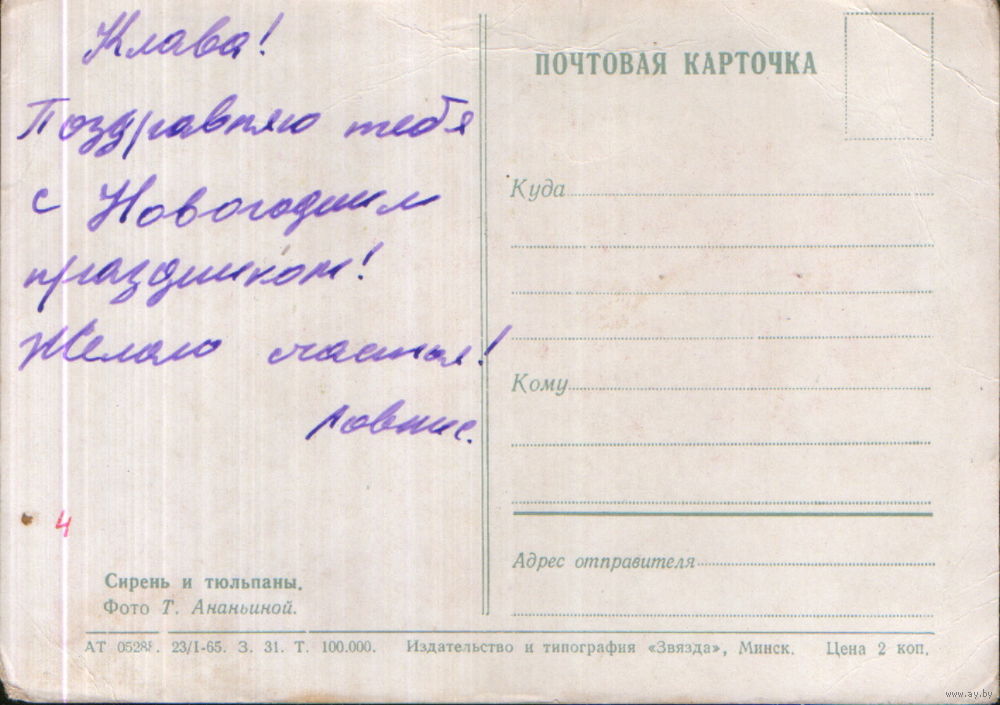 Клава!
Поздравляю тебя
с Новогодним
праздником!
Желаю счастья!
4
Сирень и тюльпаны.
Фото Т. Ананьиной.
ПОЧТОВАЯ КАРТОЧКА
Куда
Кому
Адрес отправителя
АТ 05288. 23/I-65. З. 31. Т. 100.000. Издательство и типография «Звязда», Минск. Цена 2 коп.
www.ay.by